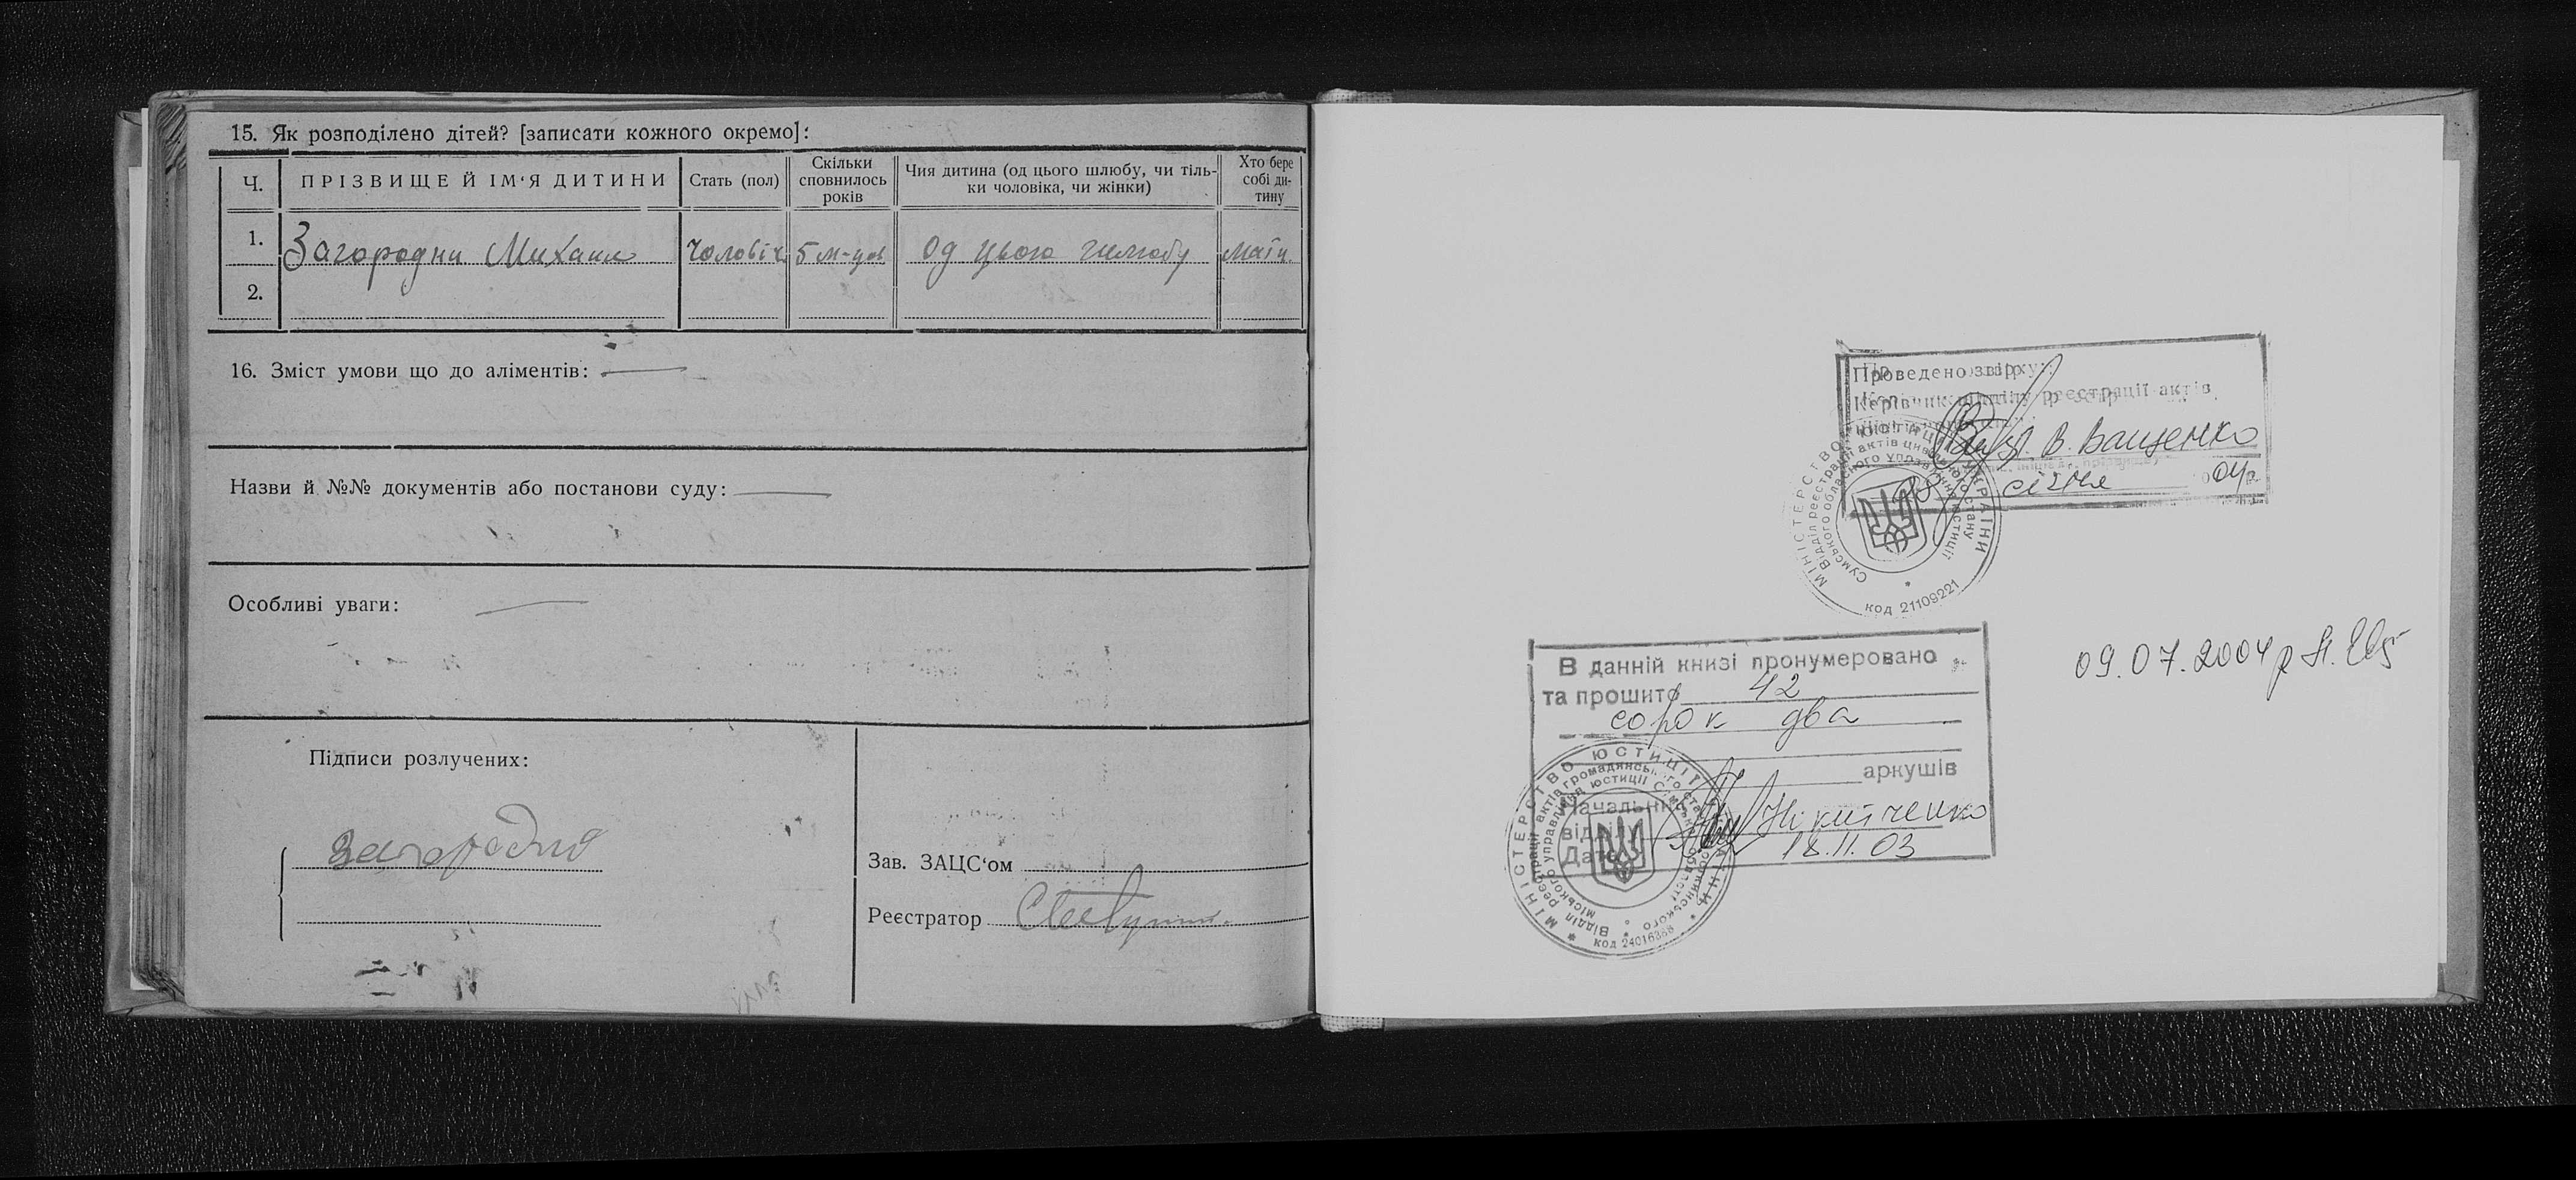 15. Як розподілено дітей? [записати кожного окремо]:
Ч. ПРІЗВИЩЕ Й ІМ‘Я ДИТИНИ Стать (пол) Скільки сповнилось років Чия дитина (од цього шлюбу, чи тіль-ки чоловіка, чи жінки) Хто бере собі ди-тину
1. Загородни Михаил чоловіч 5 м-ців од цього шлюбу мати
2.
16. Зміст умови що до аліментів: —
Назви й №№ документів або постанови суду: —
Особливі уваги: —
Підписи розлучених:
Загородня
Зав. ЗАЦС‘ом
Реєстратор
Проведено звірку:
Керівник відділу реєстрації актів
В. Ващенко
січня 04р.
МІНІСТЕРСТВО ЮСТИЦІЇ УКРАЇНИ
Відділ реєстрації актів цивільного стану
Сумського обласного управління юстиції
* код 21109221
09.07.2004р
В данній книзі пронумеровано
та прошито 42
сорок два
аркушів
Начальник
відділу Нікитченко
Дата 18.11.03
МІНІСТЕРСТВО ЮСТИЦІЇ УКРАЇНИ
Відділ реєстрації актів громадянського стану
міського управління юстиції
код 24016388